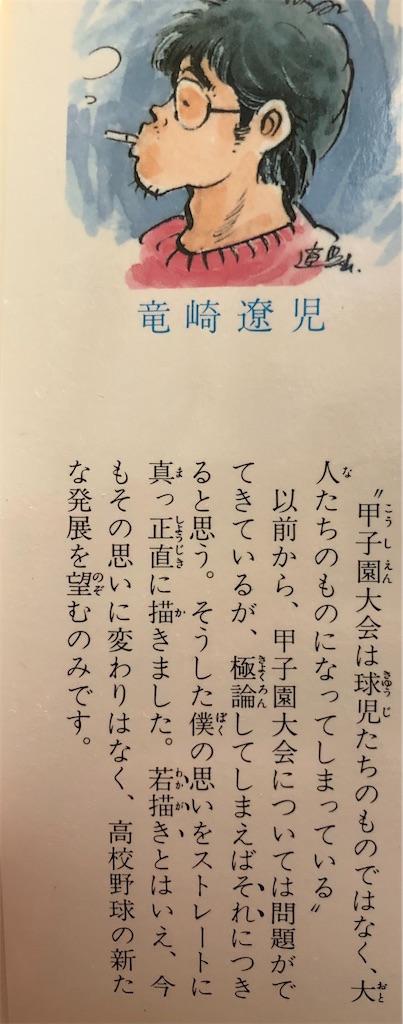 竜崎遼児
〝甲子園大会は球児たちのものではなく、大
人たちのものになってしまっている〟
以前から、甲子園大会については問題がで
てきているが、極論してしまえばそれにつき
ると思う。そうした僕の思いをストレートに
真っ正直に描きました。若描きとはいえ、今
もその思いに変わりはなく、高校野球の新た
な発展を望むのみです。